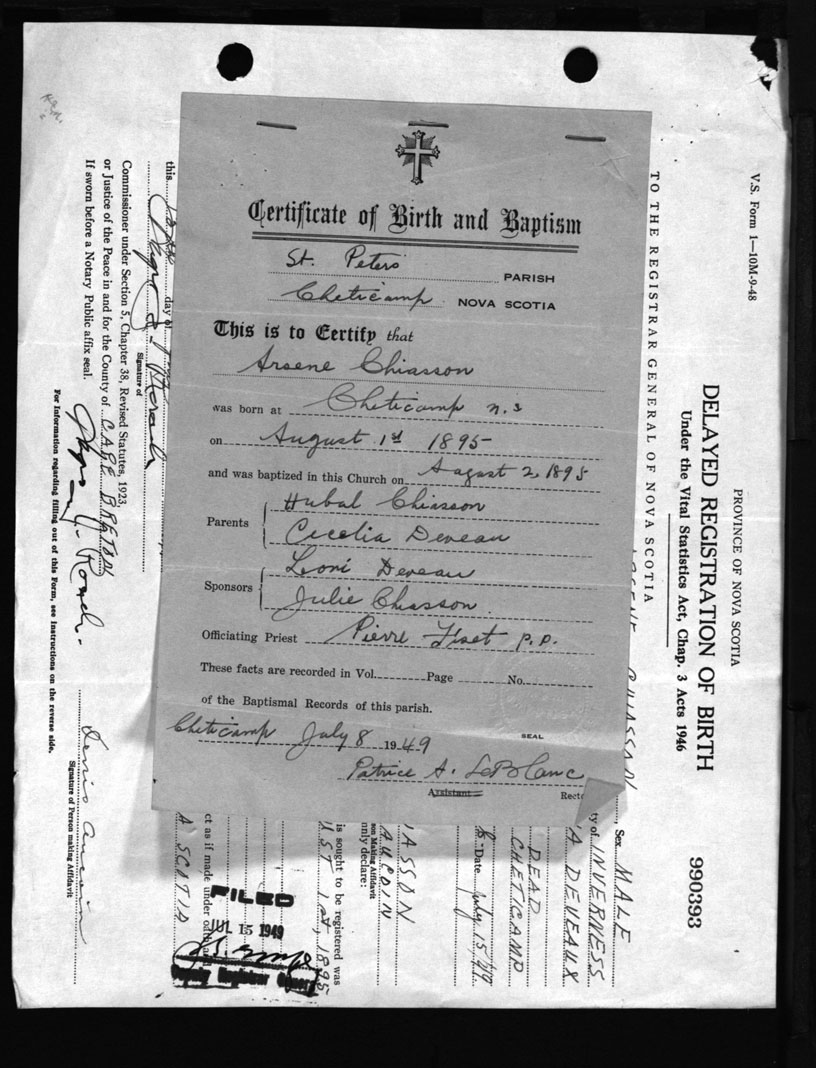 Certificate of Birth and Baptism
St. Peters PARISH
Cheticamp NOVA SCOTIA
This is to Certify that
Arsene Chiasson
was born at Cheticamp n.s
on August 1st 1895
and was baptized in this Church on August 2, 1895
Parents Hubal Chiasson
Cecelia Deveau
Sponsors Loni Deveau
Julie Chiasson
Officiating Priest Pierre Fiset P.P.
These facts are recorded in Vol. Page No.
of the Baptismal Records of this parish.
Cheticamp July 8 1949
SEAL
Patrice A. LeBlanc
Assistant Recto
V.S. Form 1—10M-9-48
PROVINCE OF NOVA SCOTIA
DELAYED REGISTRATION OF BIRTH
990393
Under the Vital Statistics Act, Chap. 3 Acts 1946
TO THE REGISTRAR GENERAL OF NOVA SCOTIA
CHIASSON, Sex MALE
ty of INVERNESS
A DEVEAUX
DEAD
CHETICAMP
Date July 15/49
IASSON
AUCOIN
son Making Affidavit
nly declare:
is sought to be registered was
UST 1st, 1895
ct as if made under oath
A SCOTIA
FILED
JUL 15 1949
Deputy Registrar General
this day of
Signature of
Commissioner under Section 5, Chapter 38, Revised Statutes, 1923,
or Justice of the Peace in and for the County of CAPE BRETON
If sworn before a Notary Public affix seal.
Signature of Person making Affidavit
For Information regarding filling out of this Form, see instructions on the reverse side.